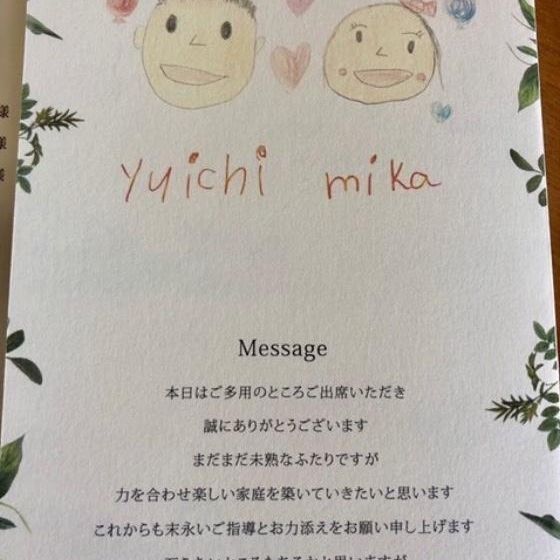 様
様
様
yuichi mika
Message
本日はご多用のところご出席いただき
誠にありがとうございます
まだまだ未熟なふたりですが
力を合わせ楽しい家庭を築いていきたいと思います
これからも末永いご指導とお力添えをお願い申し上げます